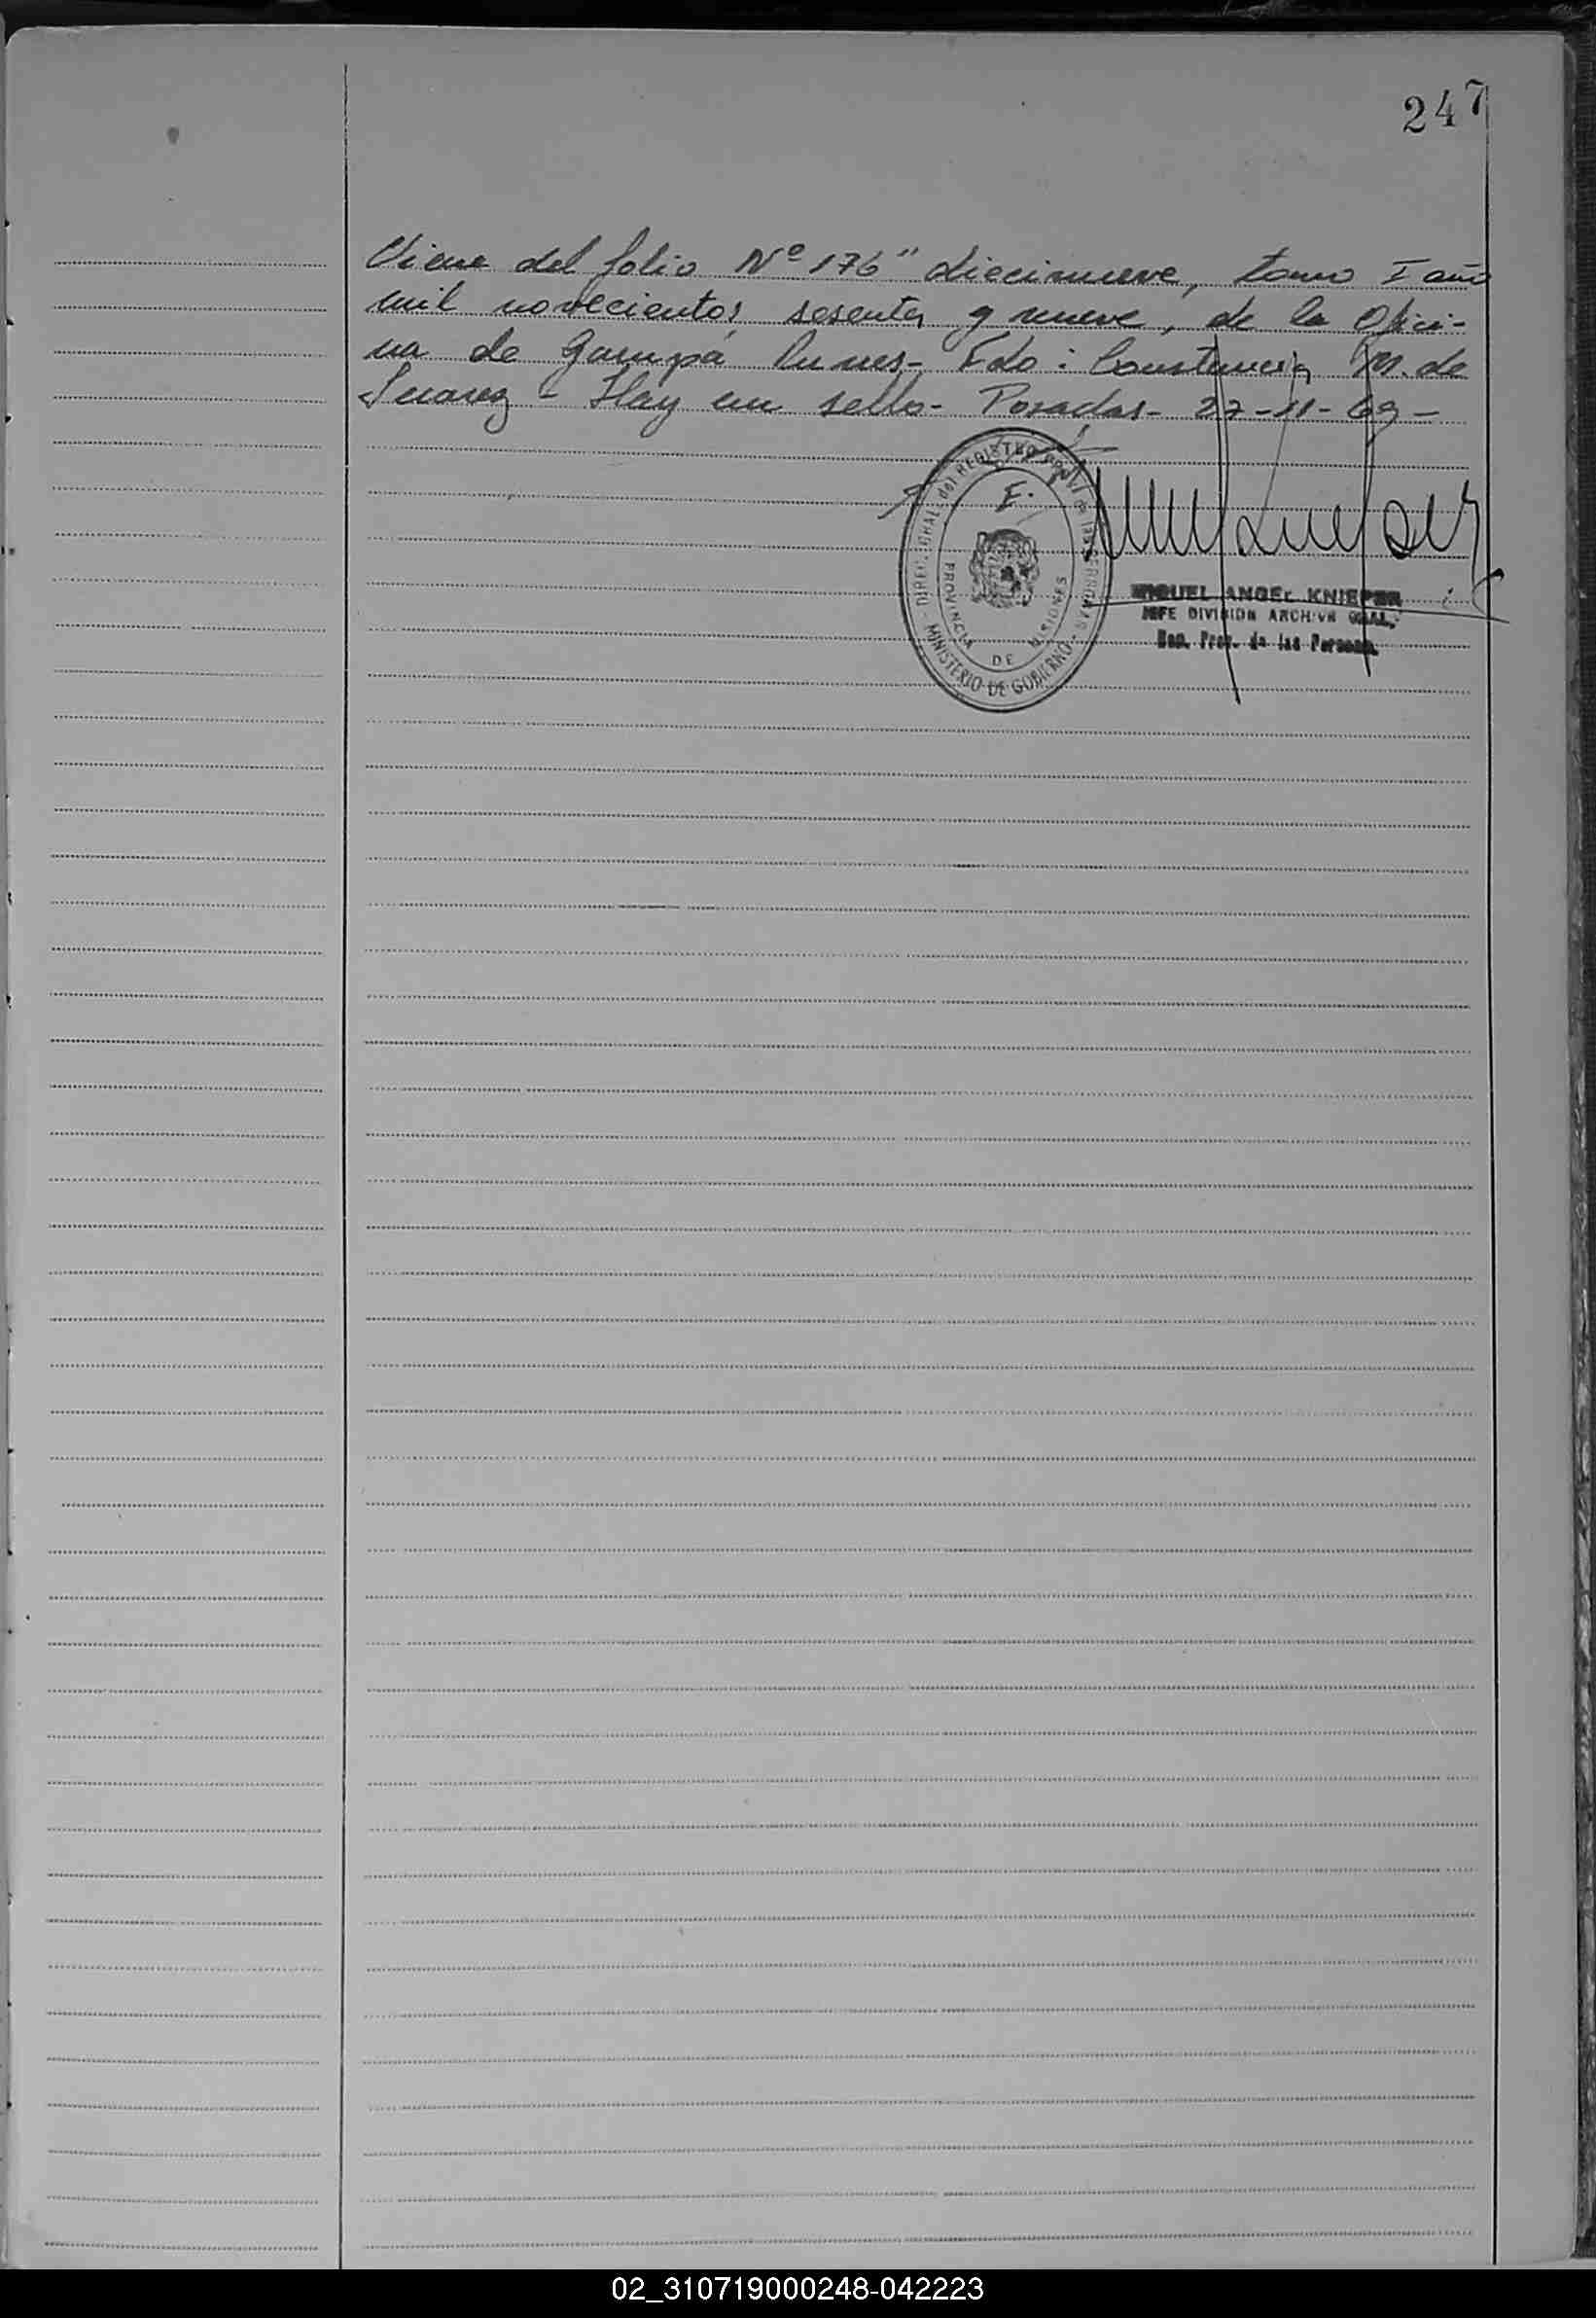 247
Viene del folio Nº 176" diecinueve, tomo I año
mil novecientos sesenta y nueve, de la Ofici-
na de Garupá Misnes- Fdo: Constancia M. de
Suarez - Hay un sello- Posadas- 27-11-69-
DIREC. GRAL. del REGISTRO PROV. de las PERSONAS
PROVINCIA DE MISIONES
MINISTERIO DE GOBIERNO
MIGUEL ANGEL KNIEPER
JEFE DIVISION ARCHIVO GRAL.
Reg. Prov. de las Personas
02_310719000248-042223